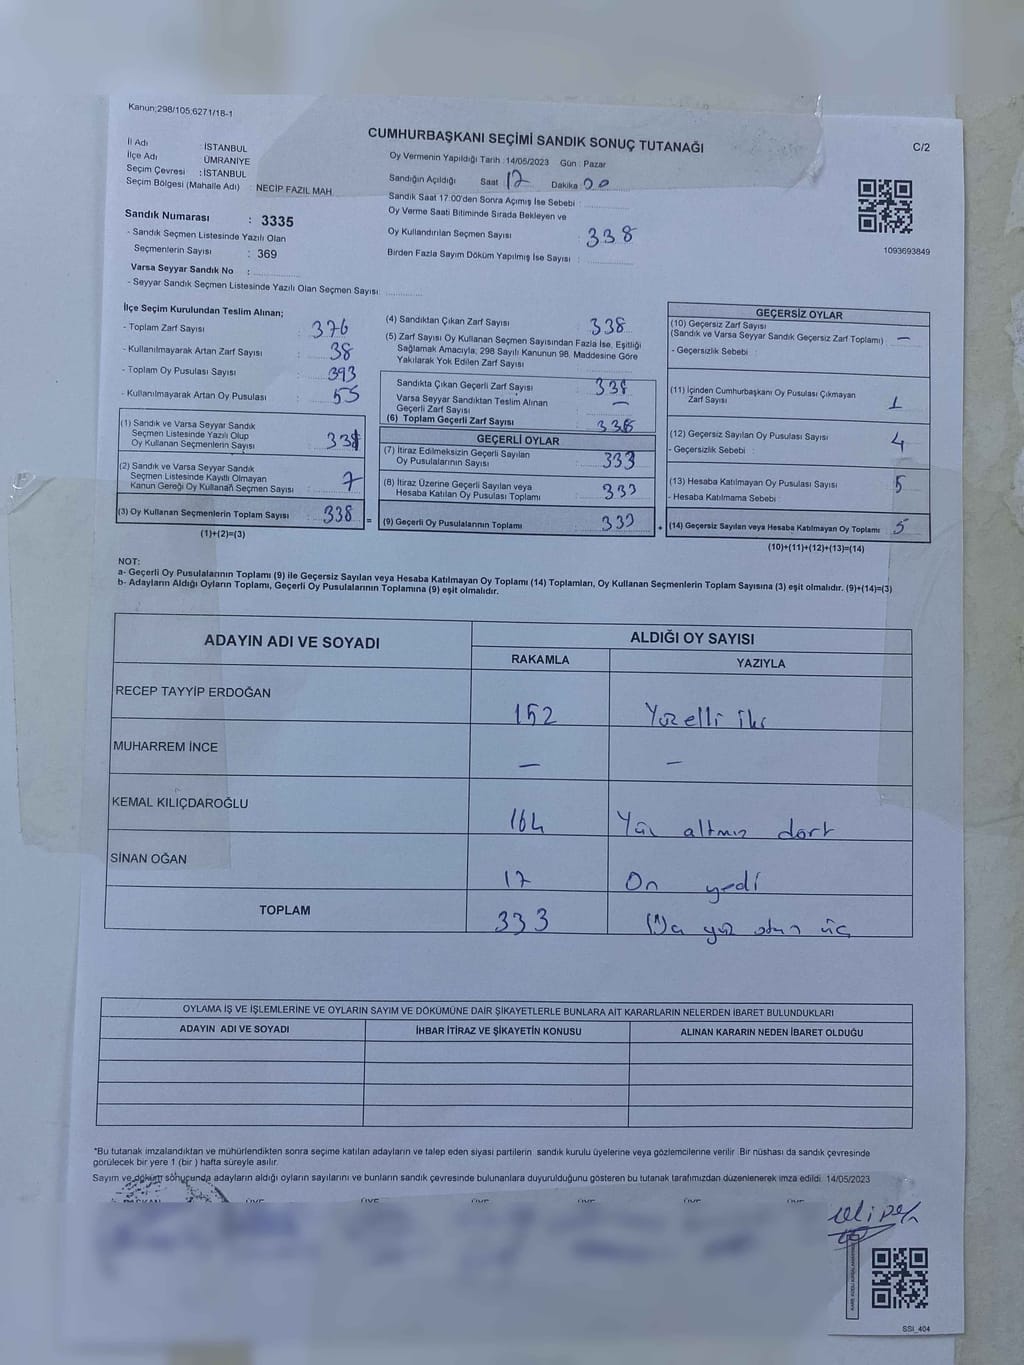 Kanun;298/105;6271/18-1
CUMHURBAŞKANI SEÇİMİ SANDIK SONUÇ TUTANAĞI
C/2
İl Adı : İSTANBUL
İlçe Adı ÜMRANİYE
Seçim Çevresi : İSTANBUL
Seçim Bölgesi (Mahalle Adı) : NECİP FAZIL MAH.
Oy Vermenin Yapıldığı Tarih : 14/05/2023 Gün : Pazar
Sandığın Açıldığı Saat 17 Dakika 00
Sandık Saat 17:00'den Sonra Açımış İse Sebebi :
Oy Verme Saati Bitiminde Sırada Bekleyen ve
Oy Kullandırılan Seçmen Sayısı : 338
Birden Fazla Sayım Döküm Yapılmış İse Sayısı :
1093693849
Sandık Numarası : 3335
- Sandık Seçmen Listesinde Yazılı Olan
Seçmenlerin Sayısı : 369
Varsa Seyyar Sandık No :
- Seyyar Sandık Seçmen Listesinde Yazılı Olan Seçmen Sayısı:
İlçe Seçim Kurulundan Teslim Alınan;
- Toplam Zarf Sayısı : 376
- Kullanılmayarak Artan Zarf Sayısı : 38
- Toplam Oy Pusulası Sayısı : 393
- Kullanılmayarak Artan Oy Pusulası : 55
(1) Sandık ve Varsa Seyyar Sandık
Seçmen Listesinde Yazılı Olup
Oy Kullanan Seçmenlerin Sayısı :
(2) Sandık ve Varsa Seyyar Sandık
Seçmen Listesinde Kayıtlı Olmayan
Kanun Gereği Oy Kullanan Seçmen Sayısı : 7
(3) Oy Kullanan Seçmenlerin Toplam Sayısı : 338
(1)+(2)=(3)
=
(4) Sandıktan Çıkan Zarf Sayısı : 338
(5) Zarf Sayısı Oy Kullanan Seçmen Sayısından Fazla İse, Eşitliği
Sağlamak Amacıyla, 298 Sayılı Kanunun 98. Maddesine Göre
Yakılarak Yok Edilen Zarf Sayısı :
Sandıkta Çıkan Geçerli Zarf Sayısı : 338
Varsa Seyyar Sandıktan Teslim Alınan
Geçerli Zarf Sayısı : —
(6) Toplam Geçerli Zarf Sayısı : 338
GEÇERLİ OYLAR
(7) İtiraz Edilmeksizin Geçerli Sayılan
Oy Pusulalarının Sayısı : 333
(8) İtiraz Üzerine Geçerli Sayılan veya
Hesaba Katılan Oy Pusulası Toplamı : 333
(9) Geçerli Oy Pusulalarının Toplamı : 333
+
GEÇERSİZ OYLAR
(10) Geçersiz Zarf Sayısı
(Sandık ve Varsa Seyyar Sandık Geçersiz Zarf Toplamı) : —
- Geçersizlik Sebebi :
(11) İçinden Cumhurbaşkanı Oy Pusulası Çıkmayan
Zarf Sayısı 1
(12) Geçersiz Sayılan Oy Pusulası Sayısı 4
- Geçersizlik Sebebi :
(13) Hesaba Katılmayan Oy Pusulası Sayısı 5
- Hesaba Katılmama Sebebi :
(14) Geçersiz Sayılan veya Hesaba Katılmayan Oy Toplamı 5
(10)+(11)+(12)+(13)=(14)
NOT:
a- Geçerli Oy Pusulalarının Toplamı (9) ile Geçersiz Sayılan veya Hesaba Katılmayan Oy Toplamı (14) Toplamları, Oy Kullanan Seçmenlerin Toplam Sayısına (3) eşit olmalıdır. (9)+(14)=(3)
b- Adayların Aldığı Oyların Toplamı, Geçerli Oy Pusulalarının Toplamına (9) eşit olmalıdır.
ADAYIN ADI VE SOYADI
ALDIĞI OY SAYISI
RAKAMLA YAZIYLA
RECEP TAYYİP ERDOĞAN 152 Yüzelli iki
MUHARREM İNCE — —
KEMAL KILIÇDAROĞLU 164 Yüz altmış dört
SİNAN OĞAN 17 On yedi
TOPLAM 333 yüz otuz üç
OYLAMA İŞ VE İŞLEMLERİNE VE OYLARIN SAYIM VE DÖKÜMÜNE DAİR ŞİKAYETLERLE BUNLARA AİT KARARLARIN NELERDEN İBARET BULUNDUKLARI
ADAYIN ADI VE SOYADI İHBAR İTİRAZ VE ŞİKAYETİN KONUSU ALINAN KARARIN NEDEN İBARET OLDUĞU
*Bu tutanak imzalandıktan ve mühürlendikten sonra seçime katılan adayların ve talep eden siyasi partilerin sandık kurulu üyelerine veya gözlemcilerine verilir. Bir nüshası da sandık çevresinde
görülecek bir yere 1 (bir ) hafta süreyle asılır.
Sayım ve döküm sonucunda adayların aldığı oyların sayılarını ve bunların sandık çevresinde bulunanlara duyurulduğunu gösteren bu tutanak tarafımızdan düzenlenerek imza edildi. 14/05/2023
BAŞKAN ÜYE ÜYE ÜYE ÜYE
SSI_404